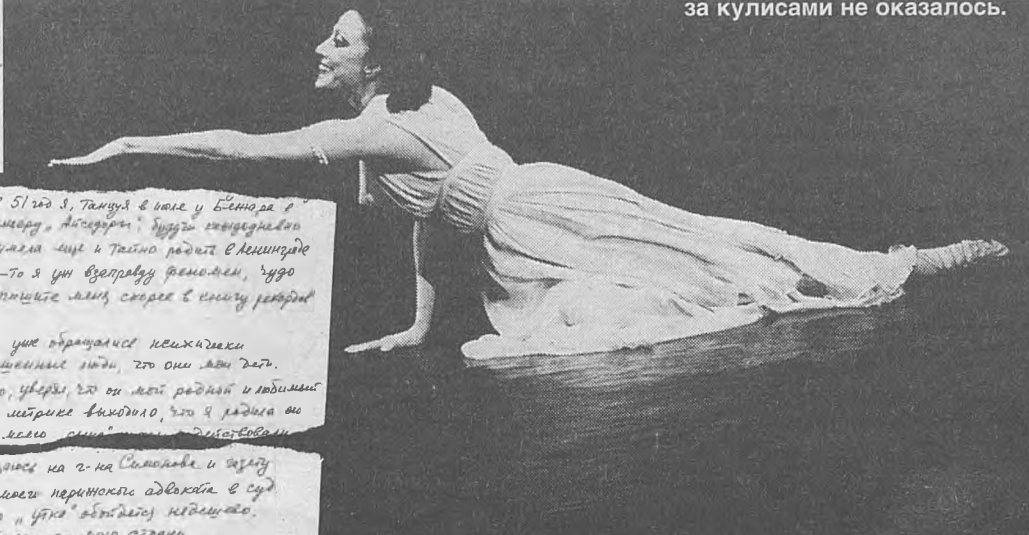 за кулисами не оказалось.
51 год я, танцуя в июле у Бежара в
"Айседоры", будучи каждодневно
умела еще и тайно родить в Ленинграде
-то я уж взаправду феномен, чудо
пишите меня скорее в книгу рекордов
уже обращались психически
люди, что они мои дети.
о, уверял, что он мой родной и любимый
метрике выходило, что я родила
моего
на г-на Симонова и газету
моего парижского адвоката в суд
"утка" обойдется недешево.